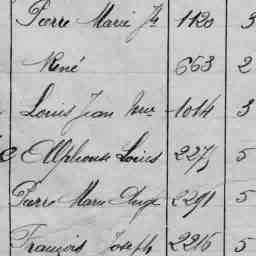 Pierre Marie Je 1120 3
René 663 2
Louis Jean Mie 1014 3
e Alphonse Louis 2275 5
Pierre Marie Ange 2291 5
François Joseph 2216 5